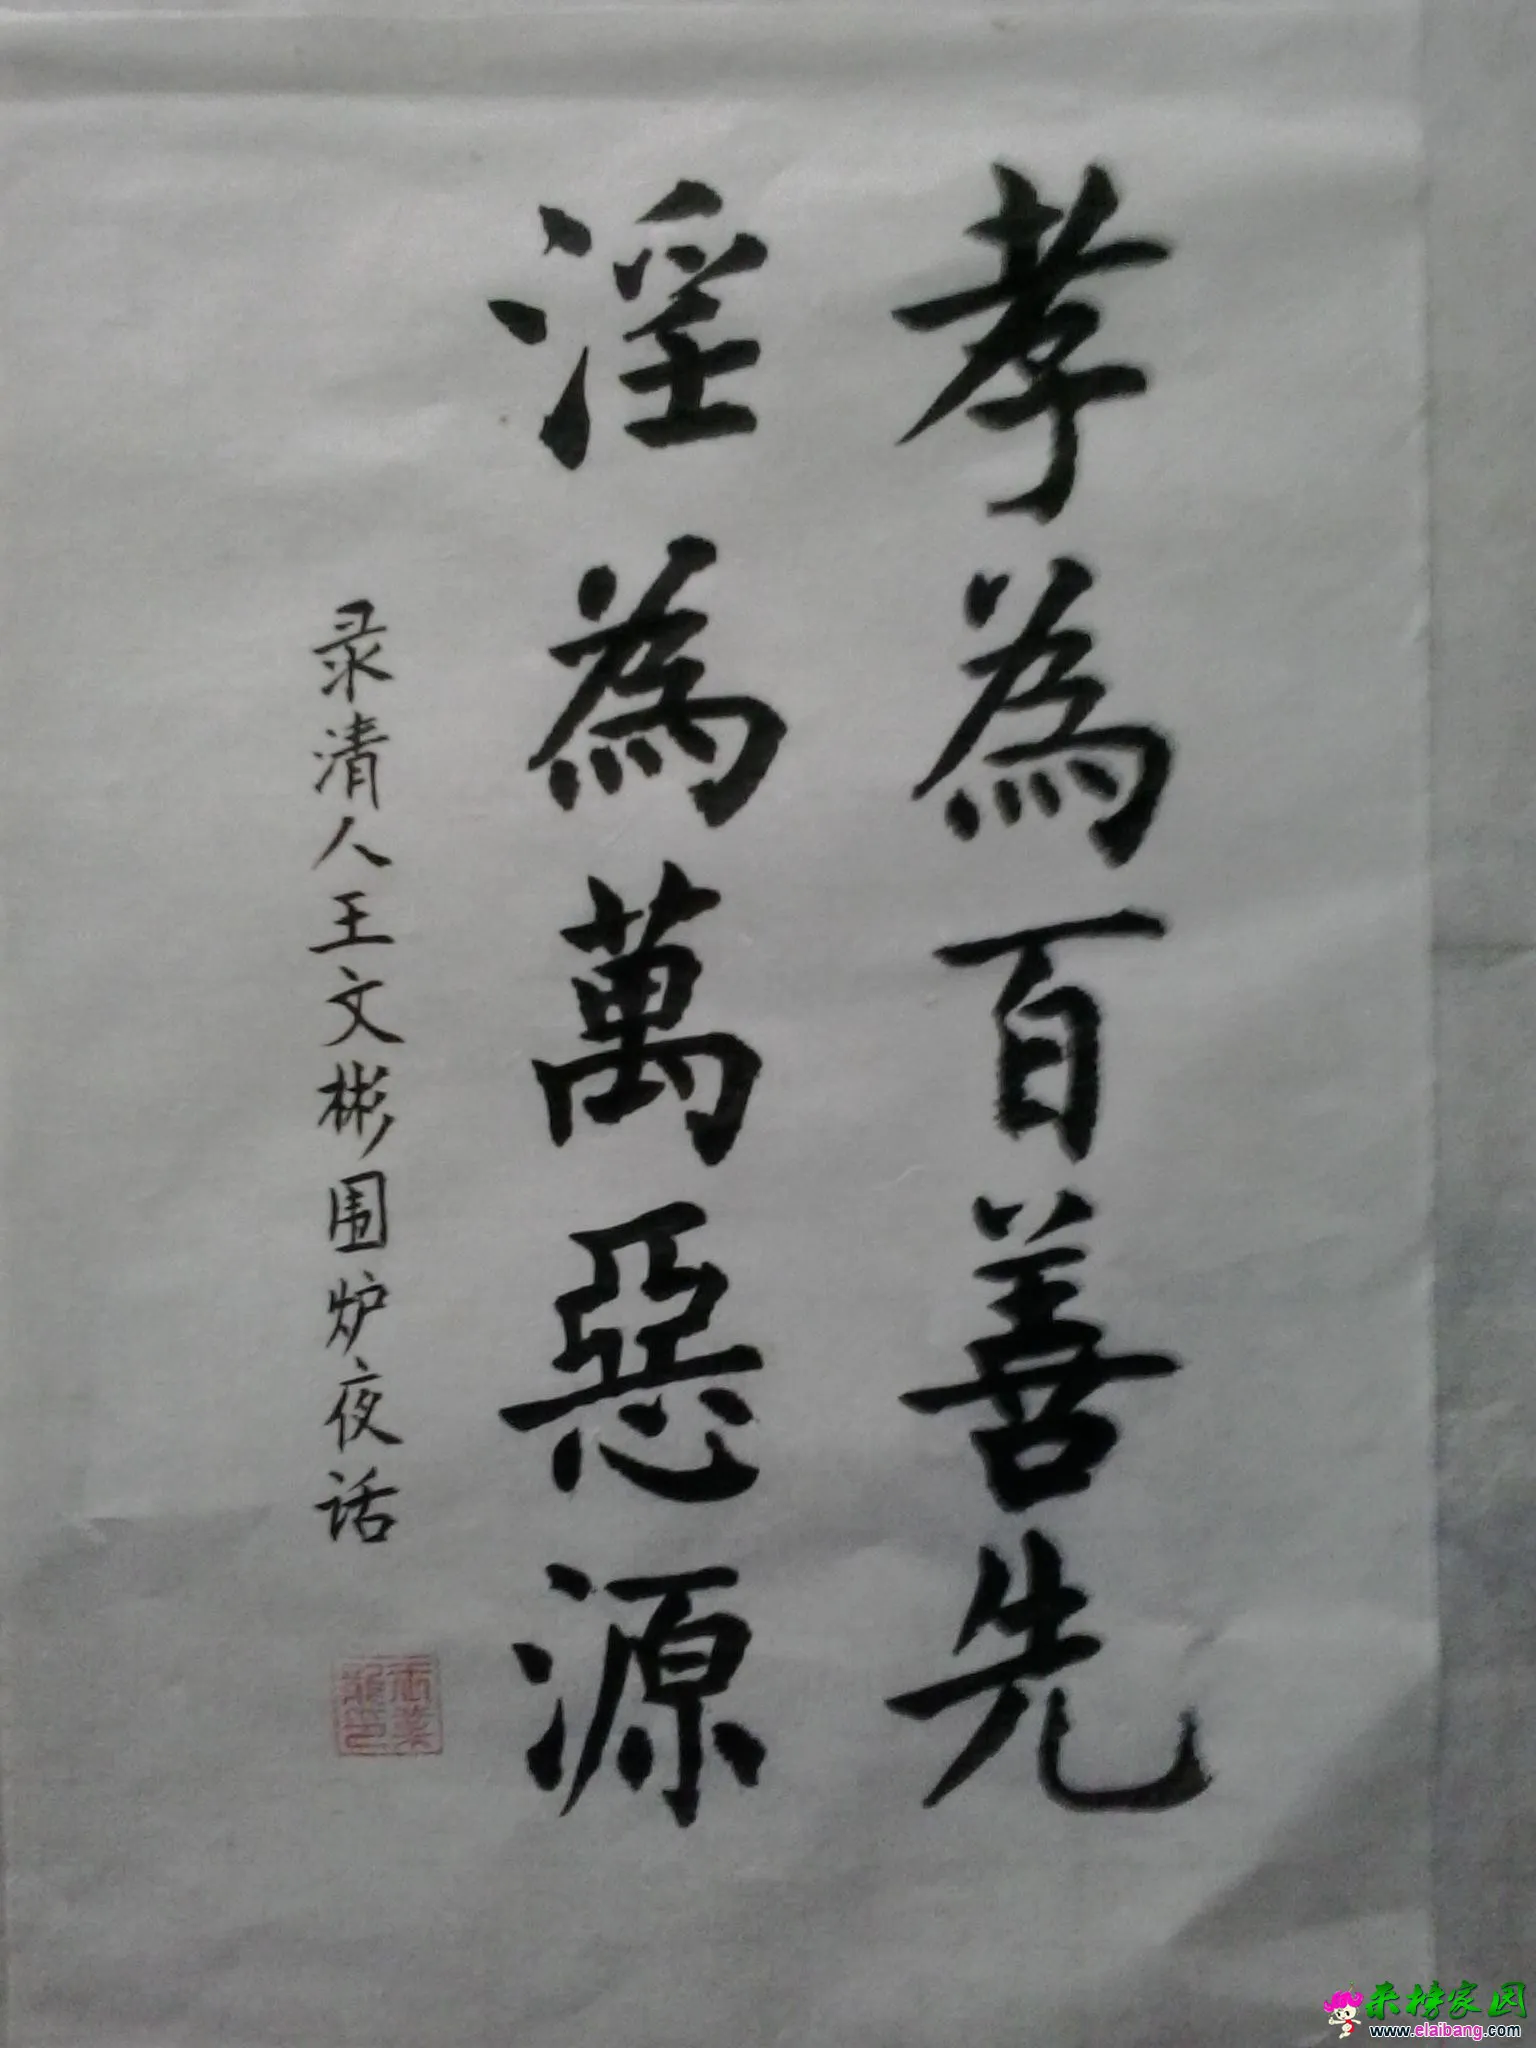 孝為百善先
淫為萬惡源
录清人王文彬围炉夜话
来榜家园
www.elaibang.com